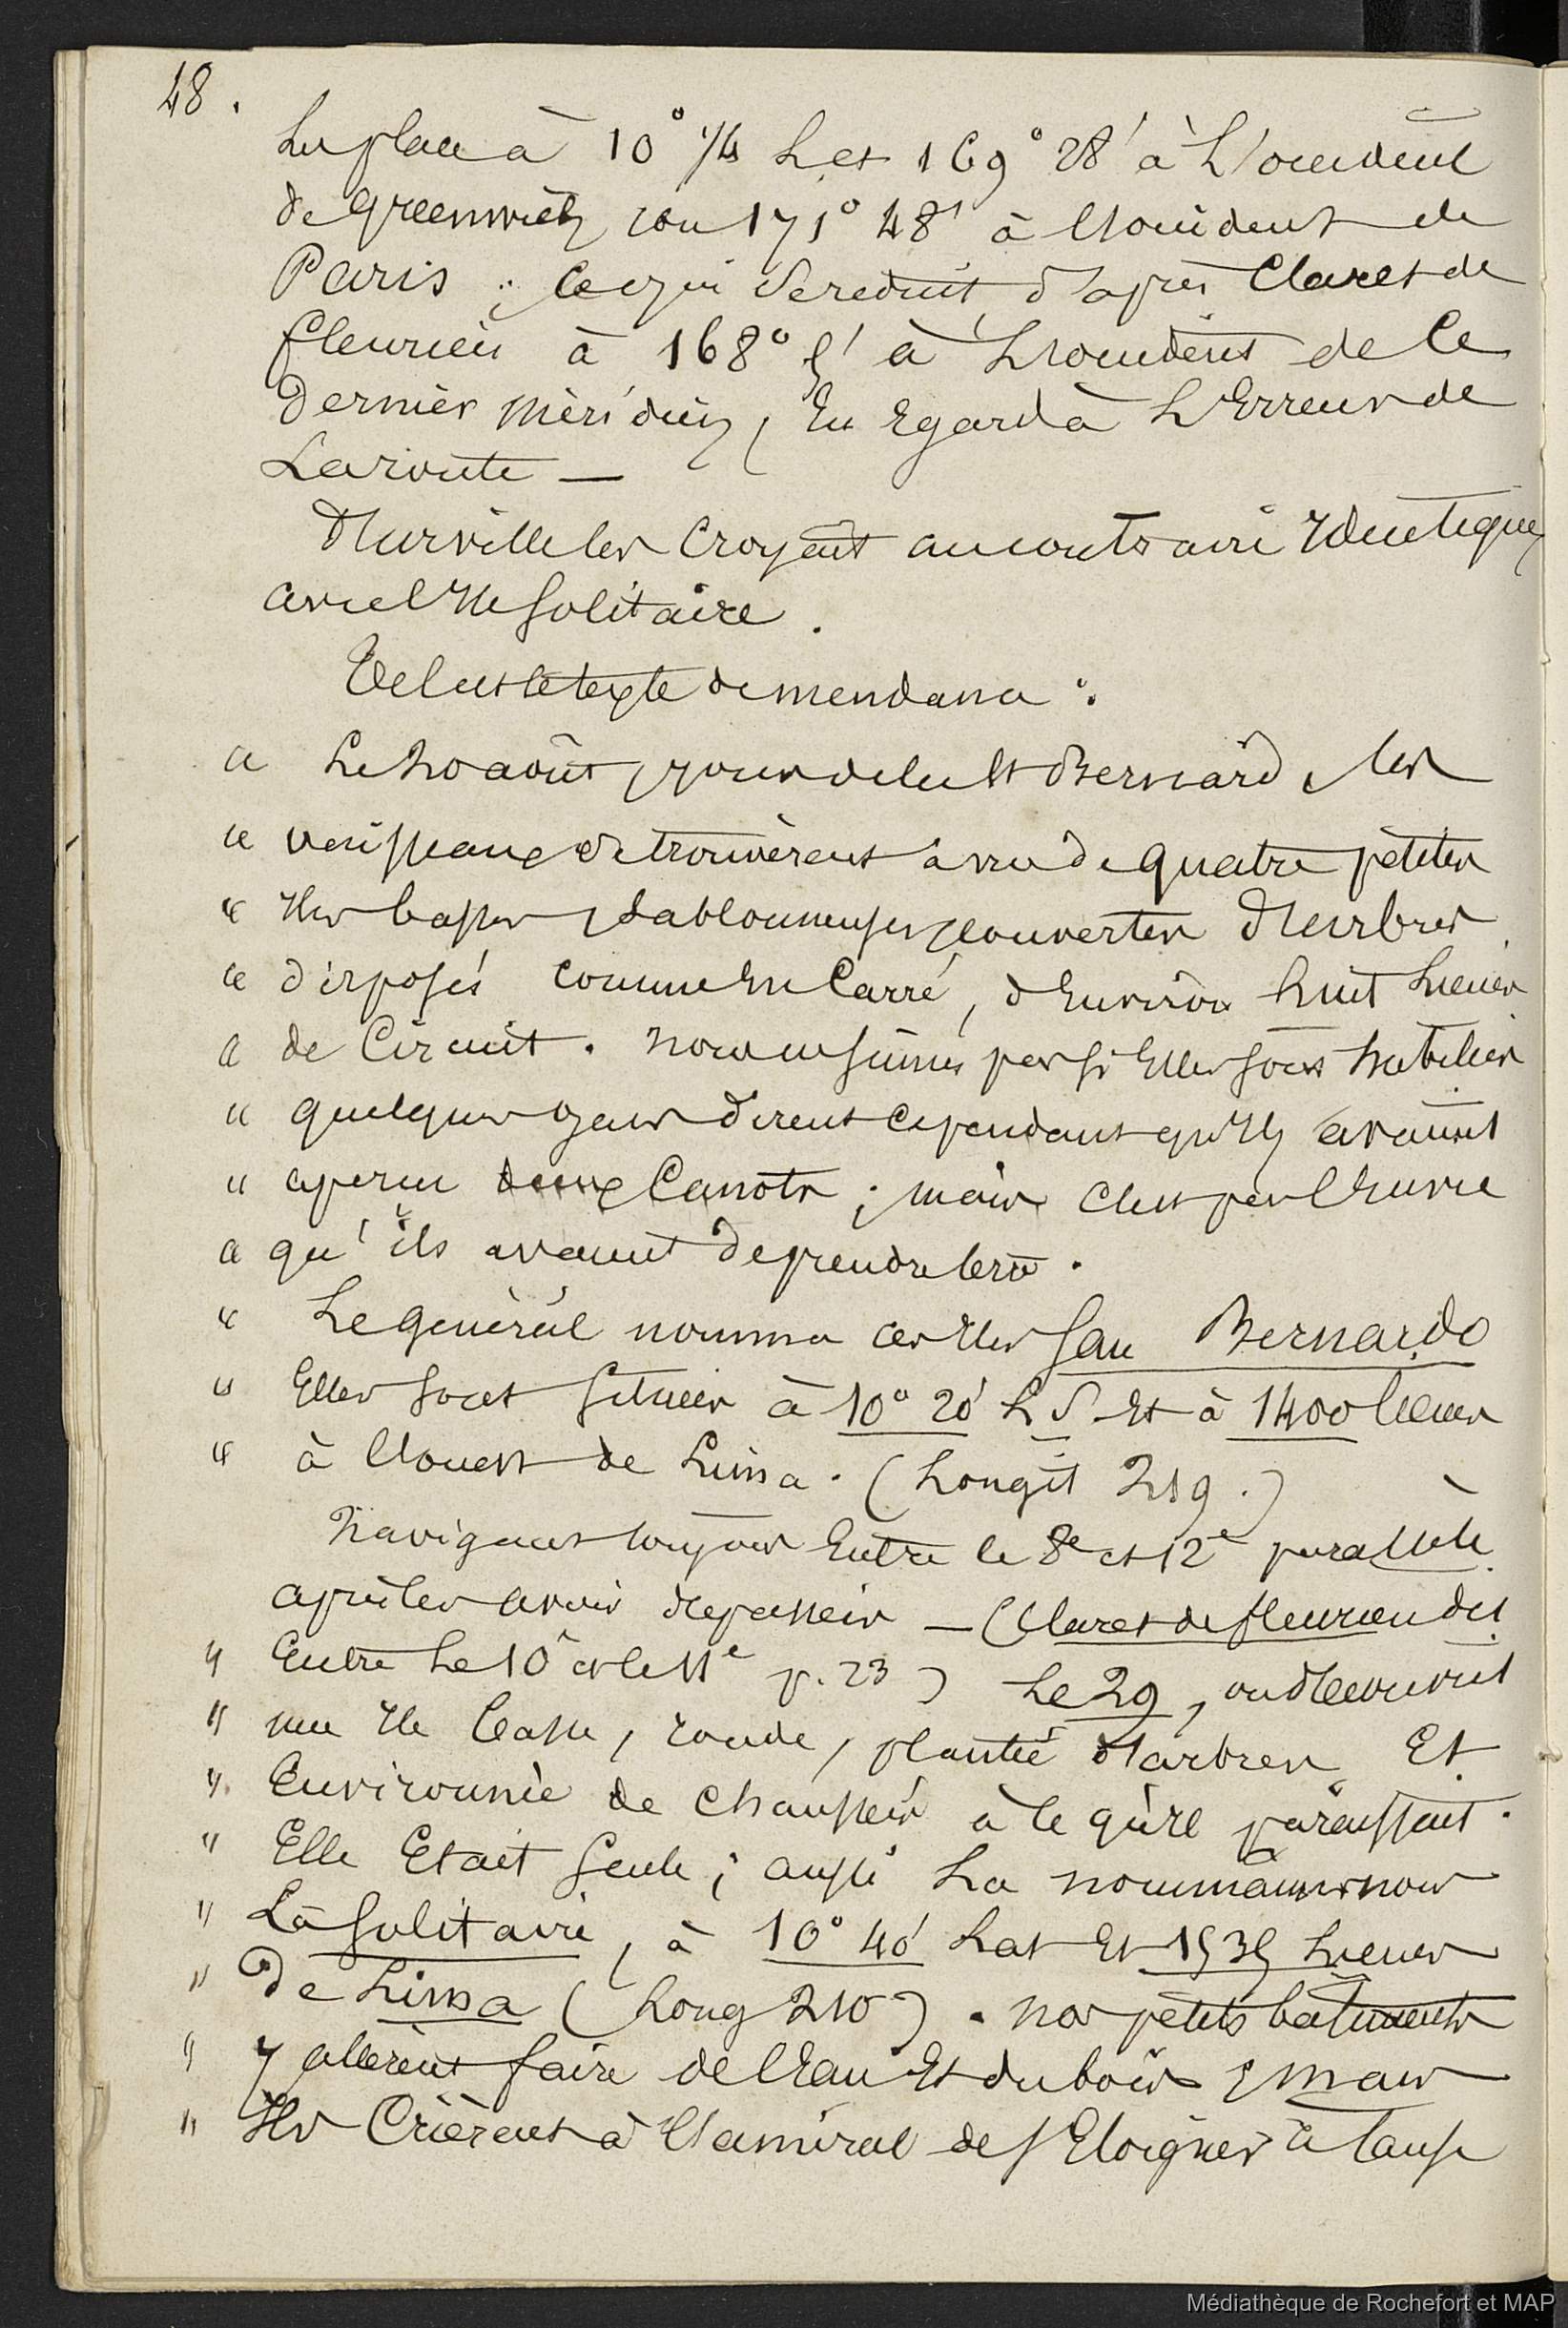 48.
Les place à 10° 1/4 L. et 169° 28' à L'occident
de Greenwich ou 171° 48' à l'occident de
Paris ; ce qui se reduit d'après Claret de
fleurieu à 168° 5' à L'occident de ce
dernier méridien, Eu Egard à L'Erreur de
La route —
d'Urville les Croyant au contraire Identiques
avec l'Ile Solitaire.
Tel est le texte de mendana :
" Le 20 août, jour de la St Bernard, les
" vaisseaux se trouvèrent à vue de quatre petites
" Iles basses, sablonneuses, couvertes d'arbres
" disposés comme En Carré, d'Environ huit Lieues
" de Circuit. nous ne sûmes pas si Elles sont habitées
" quelques gens dirent cependant qu'ils avaient
" aperçu deux Canots ; mais c'est par l'Envie
" qu'ils avaient de prendre terre.
" Le général nomma ces Iles San Bernardo
" Elles sont situées à 10° 20' L S. Et à 1400 lieues
" à l'ouest de Lima. (Longit 219.)
Navigant toujours Entre le 8e et 12e parallèle
après les avoir depassées — (Claret de fleurieu dit
" Entre Le 10e et le 11e p. 23) Le 29, on découvrit
" une Ile basse, ronde, plantée d'arbres Et
" Environnée de chaussées à ce qu'il paraissait.
" Elle Etait seule ; aussi La nommâmes nous
" La Solitaire, à 10° 40' Lat Et 1535 Lieues
" de Lima (Long 210). Nos petits bâtiments
" y allèrent faire de l'Eau Et du bois ; mais
" Ils Crièrent à l'amiral de s'Eloigner à cause